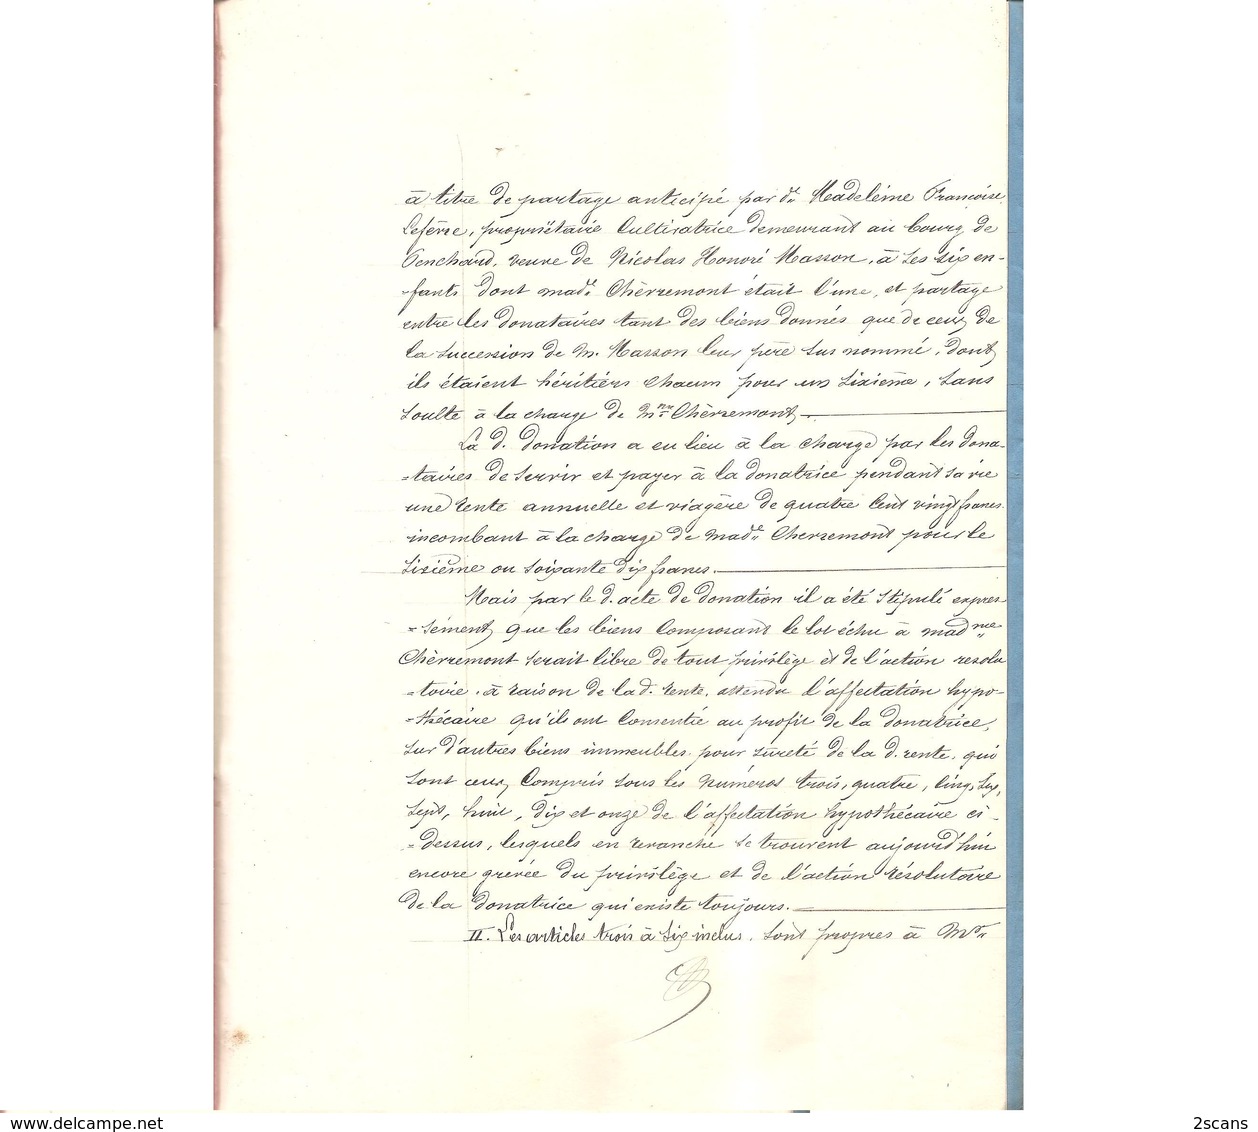 à titre de partage anticipé par dme Madeleine Françoise
Lefèvre, propriétaire cultivatrice demeurant au bourg de
Penchard, veuve de Nicolas Honoré Masson, à ses six en-
-fants dont made Chèvremont était l'une, et partage
entre les donataires tant des biens donnés que de ceux de
la succession de M. Masson leur père sus nommé, dont
ils étaient héritiers chacun pour un sixième, sans
soulte à la charge de Mme Chèvremont,
La d. donation a eu lieu à la charge par les dona-
-taires de servir et payer à la donatrice pendant sa vie
une rente annuelle et viagère de quatre cent vingt francs
incombant à la charge de made Chevremont pour le
sixième ou soixante dix francs.
Mais par le d. acte de donation il a été stipulé expres-
-sément que les biens composant le lot échu à madme
Chèvremont serait libre de tout privilège et de l'action résolu
-toire, à raison de la d. rente, attendu l'affectation hypo-
-thécaire qu'ils ont consentie au profit de la donatrice,
sur d'autres biens immeubles pour sûreté de la d. rente, qui
sont ceux compris sous les numéros trois, quatre, cinq, six,
sept, huit, dix et onze de l'affectation hypothécaire ci-
-dessus, lesquels en revanche se trouvent aujourd'hui
encore grévée du privilège et de l'action résolutoire
de la donatrice qui existe toujours.
II. Les articles trois à six inclus, sont propres à Mr
www.delcampe.net
2scans